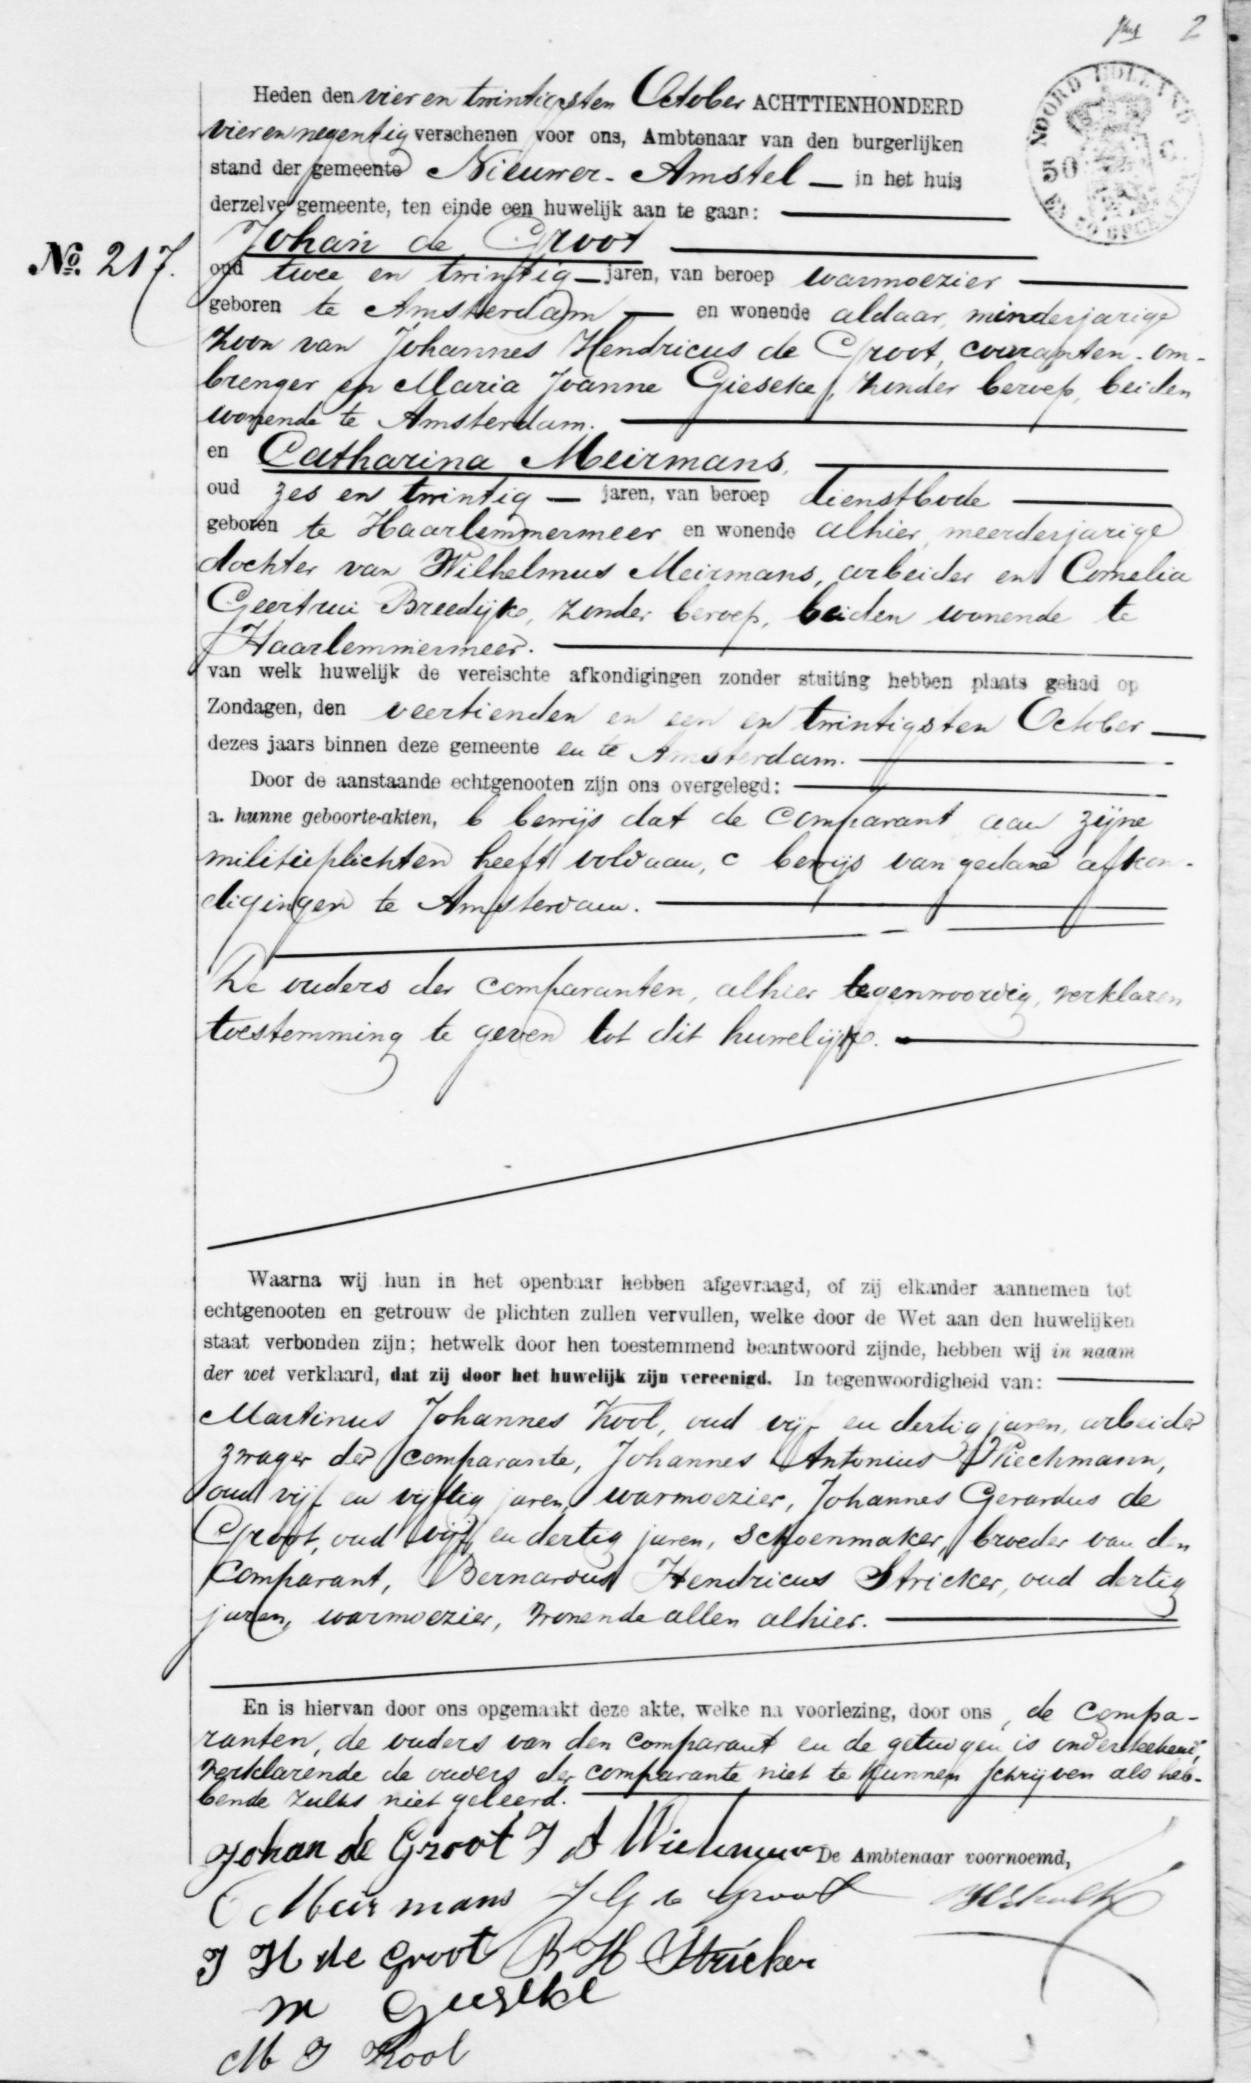 2
NOORD-HOLLAND
50 C.
EN 30 OPCENTEN
Heden den vier en twintigsten October ACHTTIENHONDERD
vier en negentig verschenen voor ons, Ambtenaar van den burgerlijken
stand der gemeente Nieuwer-Amstel — in het huis
derzelve gemeente, ten einde een huwelijk aan te gaan: —
No. 217.
Johan de Groot —
oud twee en twintig — jaren, van beroep warmoezier —
geboren te Amsterdam — en wonende aldaar, minderjarige
zoon van Johannes Hendricus de Groot, couranten-om-
brenger en Maria Joanne Gieseke, zonder beroep, beiden
wonende te Amsterdam. —
en Catharina Meirmans, —
oud zes en twintig — jaren, van beroep dienstbode —
geboren te Haarlemmermeer en wonende alhier, meerderjarige
dochter van Wilhelmus Meirmans, arbeider en Cornelia
Geertrui Breedijk, zonder beroep, beiden wonende te
Haarlemmermeer. —
van welk huwelijk de vereischte afkondigingen zonder stuiting hebben plaats gehad op
Zondagen, den veertienden en een en twintigsten October —
dezes jaars binnen deze gemeente en te Amsterdam. —
Door de aanstaande echtgenooten zijn ons overgelegd: —
a. hunne geboorte-akten, b bewijs dat de comparant aan zijne
militieplichten heeft voldaan, c bewijs van gedane afkon-
digingen te Amsterdam. —
De ouders der comparanten, alhier tegenwoordig, verklaren
toestemming te geven tot dit huwelijk. —
Waarna wij hun in het openbaar hebben afgevraagd, of zij elkander aannemen tot
echtgenooten en getrouw de plichten zullen vervullen, welke door de Wet aan den huwelijken
staat verbonden zijn; hetwelk door hen toestemmend beantwoord zijnde, hebben wij in naam
der wet verklaard, dat zij door het huwelijk zijn vereenigd. In tegenwoordigheid van: —
Martinus Johannes Kool, oud vijf en dertig jaren, arbeider
zwager der comparante, Johannes Antonius Wiechmann,
oud vijf en vijftig jaren, warmoezier, Johannes Gerardus de
Groot, oud vijf en dertig jaren, schoenmaker, broeder van den
comparant, Bernardus Hendricus Stricker, oud dertig
jaren, warmoezier, wonende allen alhier. —
En is hiervan door ons opgemaakt deze akte, welke na voorlezing, door ons, de compa-
ranten, de ouders van den comparant en de getuigen is onderteekend,
verklarende de ouders der comparante niet te kunnen schrijven als heb-
bende zulks niet geleerd.
Johan de Groot J A Wichman De Ambtenaar voornoemd,
C Meirmans J G de Groot
J H de Groot B H Stricker
M Gieseke
M J Kool